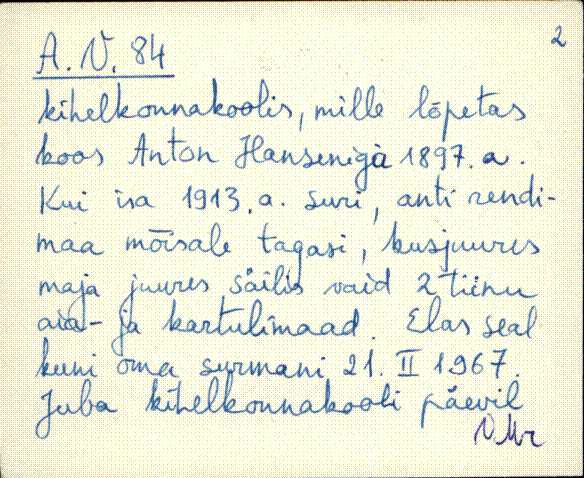 2
A. V. 84
kihelkonnakoolis, mille lõpetas
koos Anton Hanseniga 1897. a.
Kui isa 1913. a. suri, anti rendi-
maa mõisale tagasi, kusjuures
maja juures säilis vaid 2 tiinu
aia- ja kartulimaad. Elas seal
kuni oma surmani 21. II 1967.
Juba kihelkonnakooli päevil